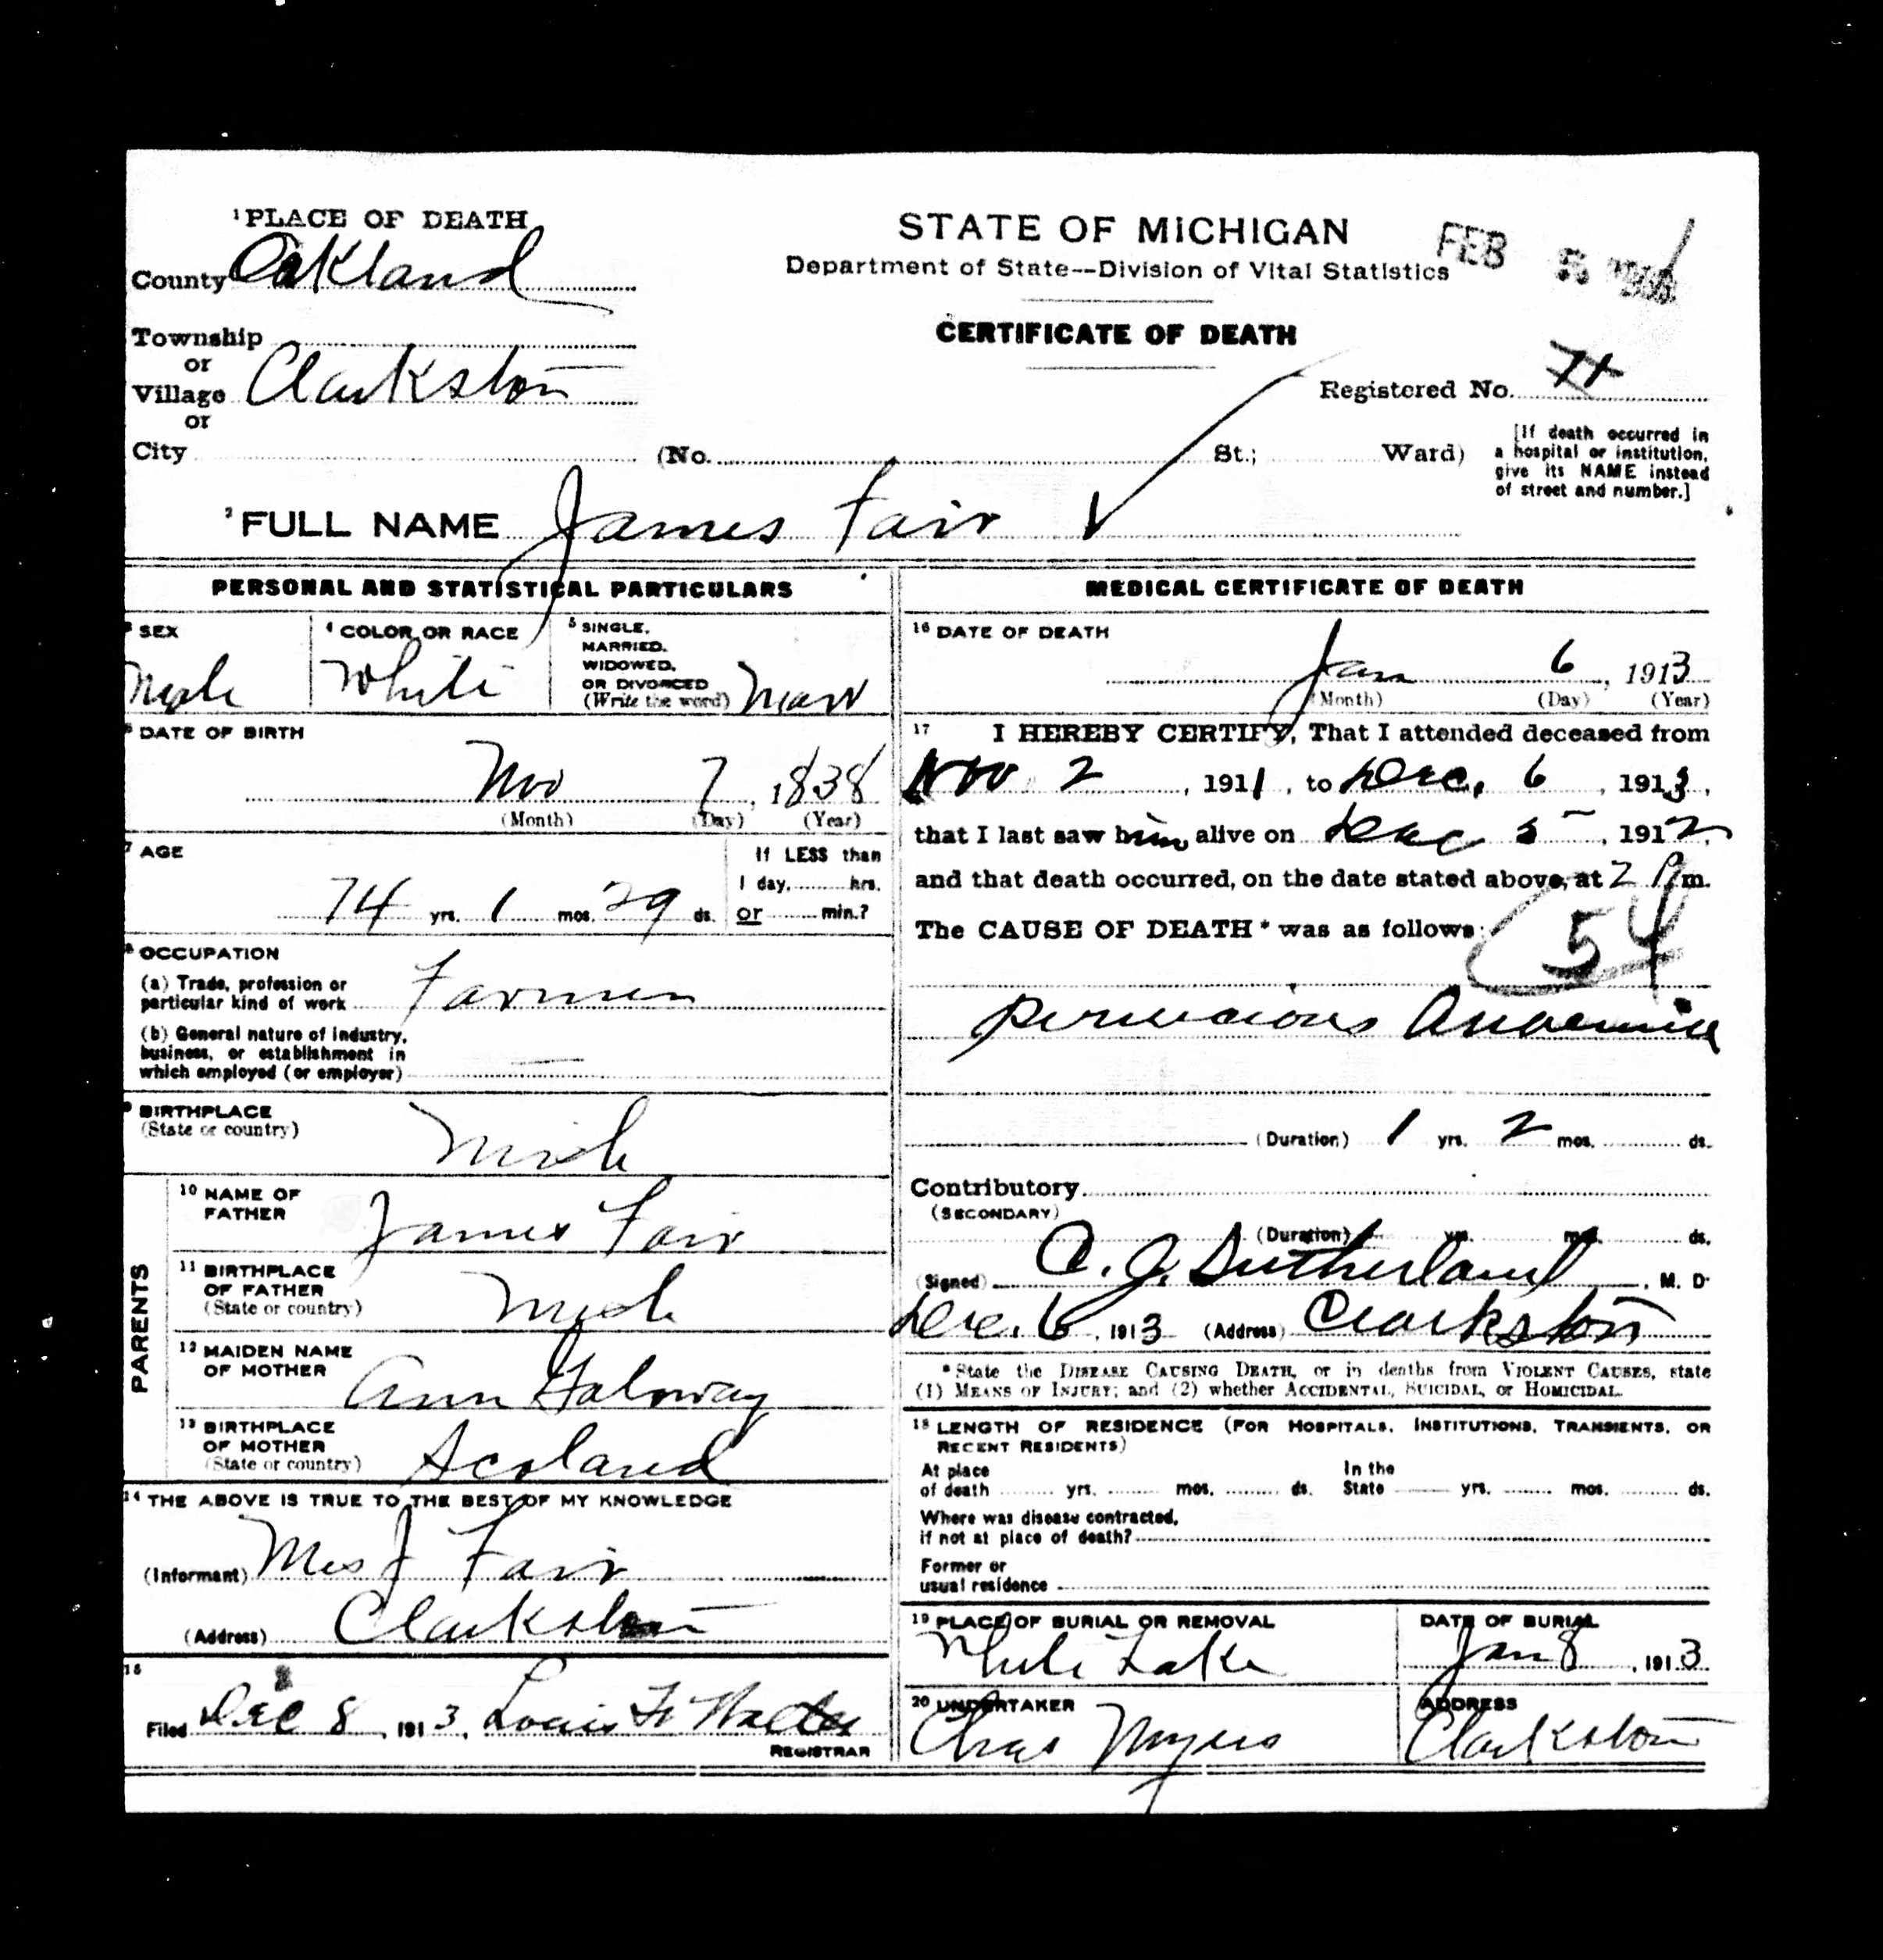 1 PLACE OF DEATH
County Oakland
Township
or
Village Clarkston
or
City (No. St.; Ward)
STATE OF MICHIGAN
Department of State--Division of Vital Statistics
FEB 5
CERTIFICATE OF DEATH
Registered No.
[If death occurred in
a hospital or institution,
give its NAME instead
of street and number.]
2 FULL NAME James Fair
PERSONAL AND STATISTICAL PARTICULARS
3 SEX
Male
4 COLOR OR RACE
White
5 SINGLE,
MARRIED,
WIDOWED,
OR DIVORCED
(Write the word) Marr
6 DATE OF BIRTH
Nov 7, 1838
(Month) (Day) (Year)
7 AGE
74 yrs. 1 mos. 29 ds.
If LESS than
1 day, hrs.
or min.?
8 OCCUPATION
(a) Trade, profession or
particular kind of work Farmer
(b) General nature of industry,
business, or establishment in
which employed (or employer)
9 BIRTHPLACE
(State or country) Mich
PARENTS
10 NAME OF
FATHER James Fair
11 BIRTHPLACE
OF FATHER
(State or country) Mich
12 MAIDEN NAME
OF MOTHER Ann Galoway
13 BIRTHPLACE
OF MOTHER
(State or country) Scoland
14 THE ABOVE IS TRUE TO THE BEST OF MY KNOWLEDGE
(Informant) Mrs J Fair
(Address) Clarkston
15
Filed Dec 8, 1913, Louis F Walter
REGISTRAR
MEDICAL CERTIFICATE OF DEATH
16 DATE OF DEATH
Jan 6, 1913
(Month) (Day) (Year)
17 I HEREBY CERTIFY, That I attended deceased from
Nov 2, 1911, to Dec. 6, 1913,
that I last saw him alive on Dec 5, 1912,
and that death occurred, on the date stated above, at 2 P m.
The CAUSE OF DEATH* was as follows:
54
Pernicious Anaemia
(Duration) 1 yrs. 2 mos. ds.
Contributory
(SECONDARY)
(Duration) yrs. mos. ds.
(Signed) C. J. Sutherland, M. D.
Dec. 6, 1913 (Address) Clarkston
*State the DISEASE CAUSING DEATH, or in deaths from VIOLENT CAUSES, state
(1) MEANS OF INJURY; and (2) whether ACCIDENTAL, SUICIDAL, or HOMICIDAL.
18 LENGTH OF RESIDENCE (FOR HOSPITALS, INSTITUTIONS, TRANSIENTS, OR
RECENT RESIDENTS)
At place
of death yrs. mos. ds.
In the
State yrs. mos. ds.
Where was disease contracted,
if not at place of death?
Former or
usual residence
19 PLACE OF BURIAL OR REMOVAL
White Lake
DATE OF BURIAL
Jan 8, 1913
20 UNDERTAKER
Chas Myers
ADDRESS
Clarkston